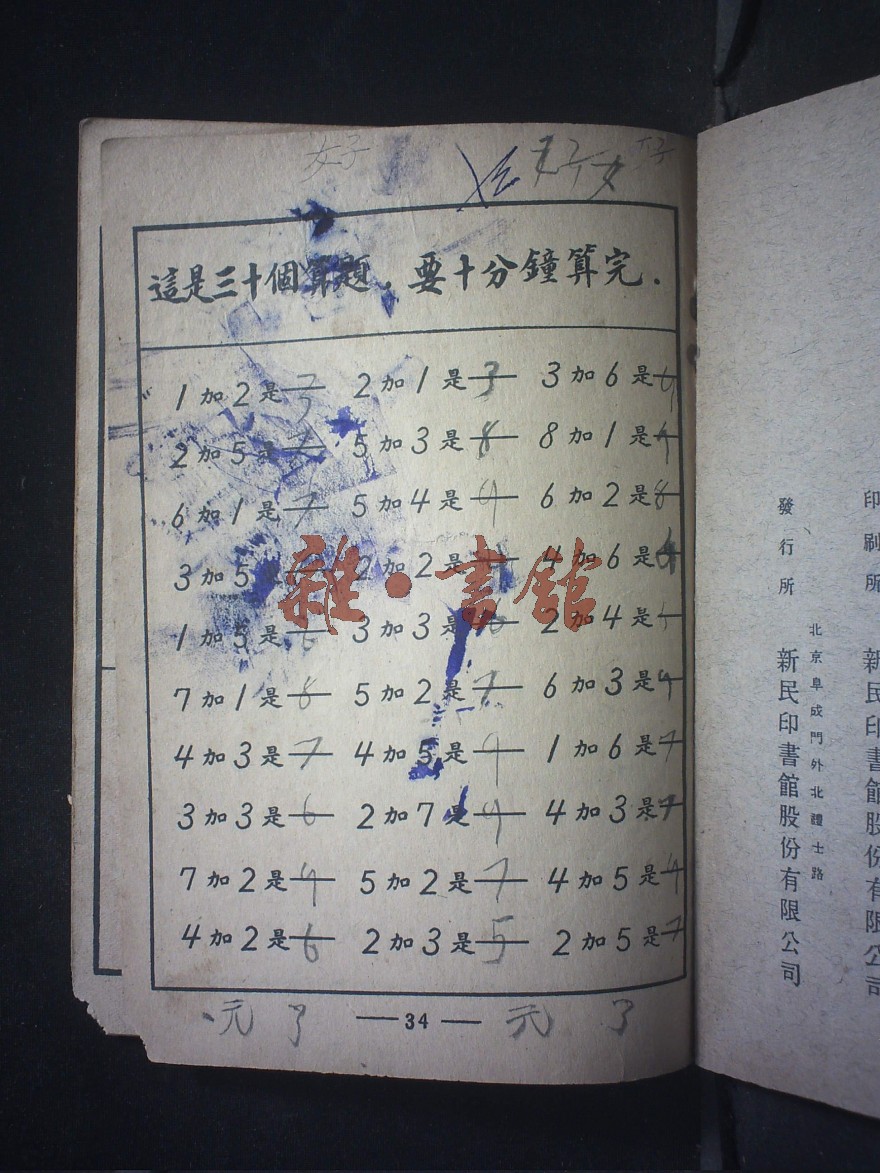 好
這是三十個算題，要十分鐘算完.
1加2是 3 2加1是 3 3加6是 9
2加5是 7 5加3是 8 8加1是 9
6加1是 7 5加4是 9 6加2是 8
3加5 2加2是 4加6是
1加5是 6 3加3是 6 2加4是
7加1是 8 5加2是 7 6加3是 9
4加3是 7 4加5是 9 1加6是 7
3加3是 6 2加7是 9 4加3是 7
7加2是 9 5加2是 7 4加5是 9
4加2是 6 2加3是 5 2加5是 7
元了 — 34 — 元了
雜·書館
印刷所 新民印書館股份有限公司
北京阜成門外北禮士路
發行所 新民印書館股份有限公司